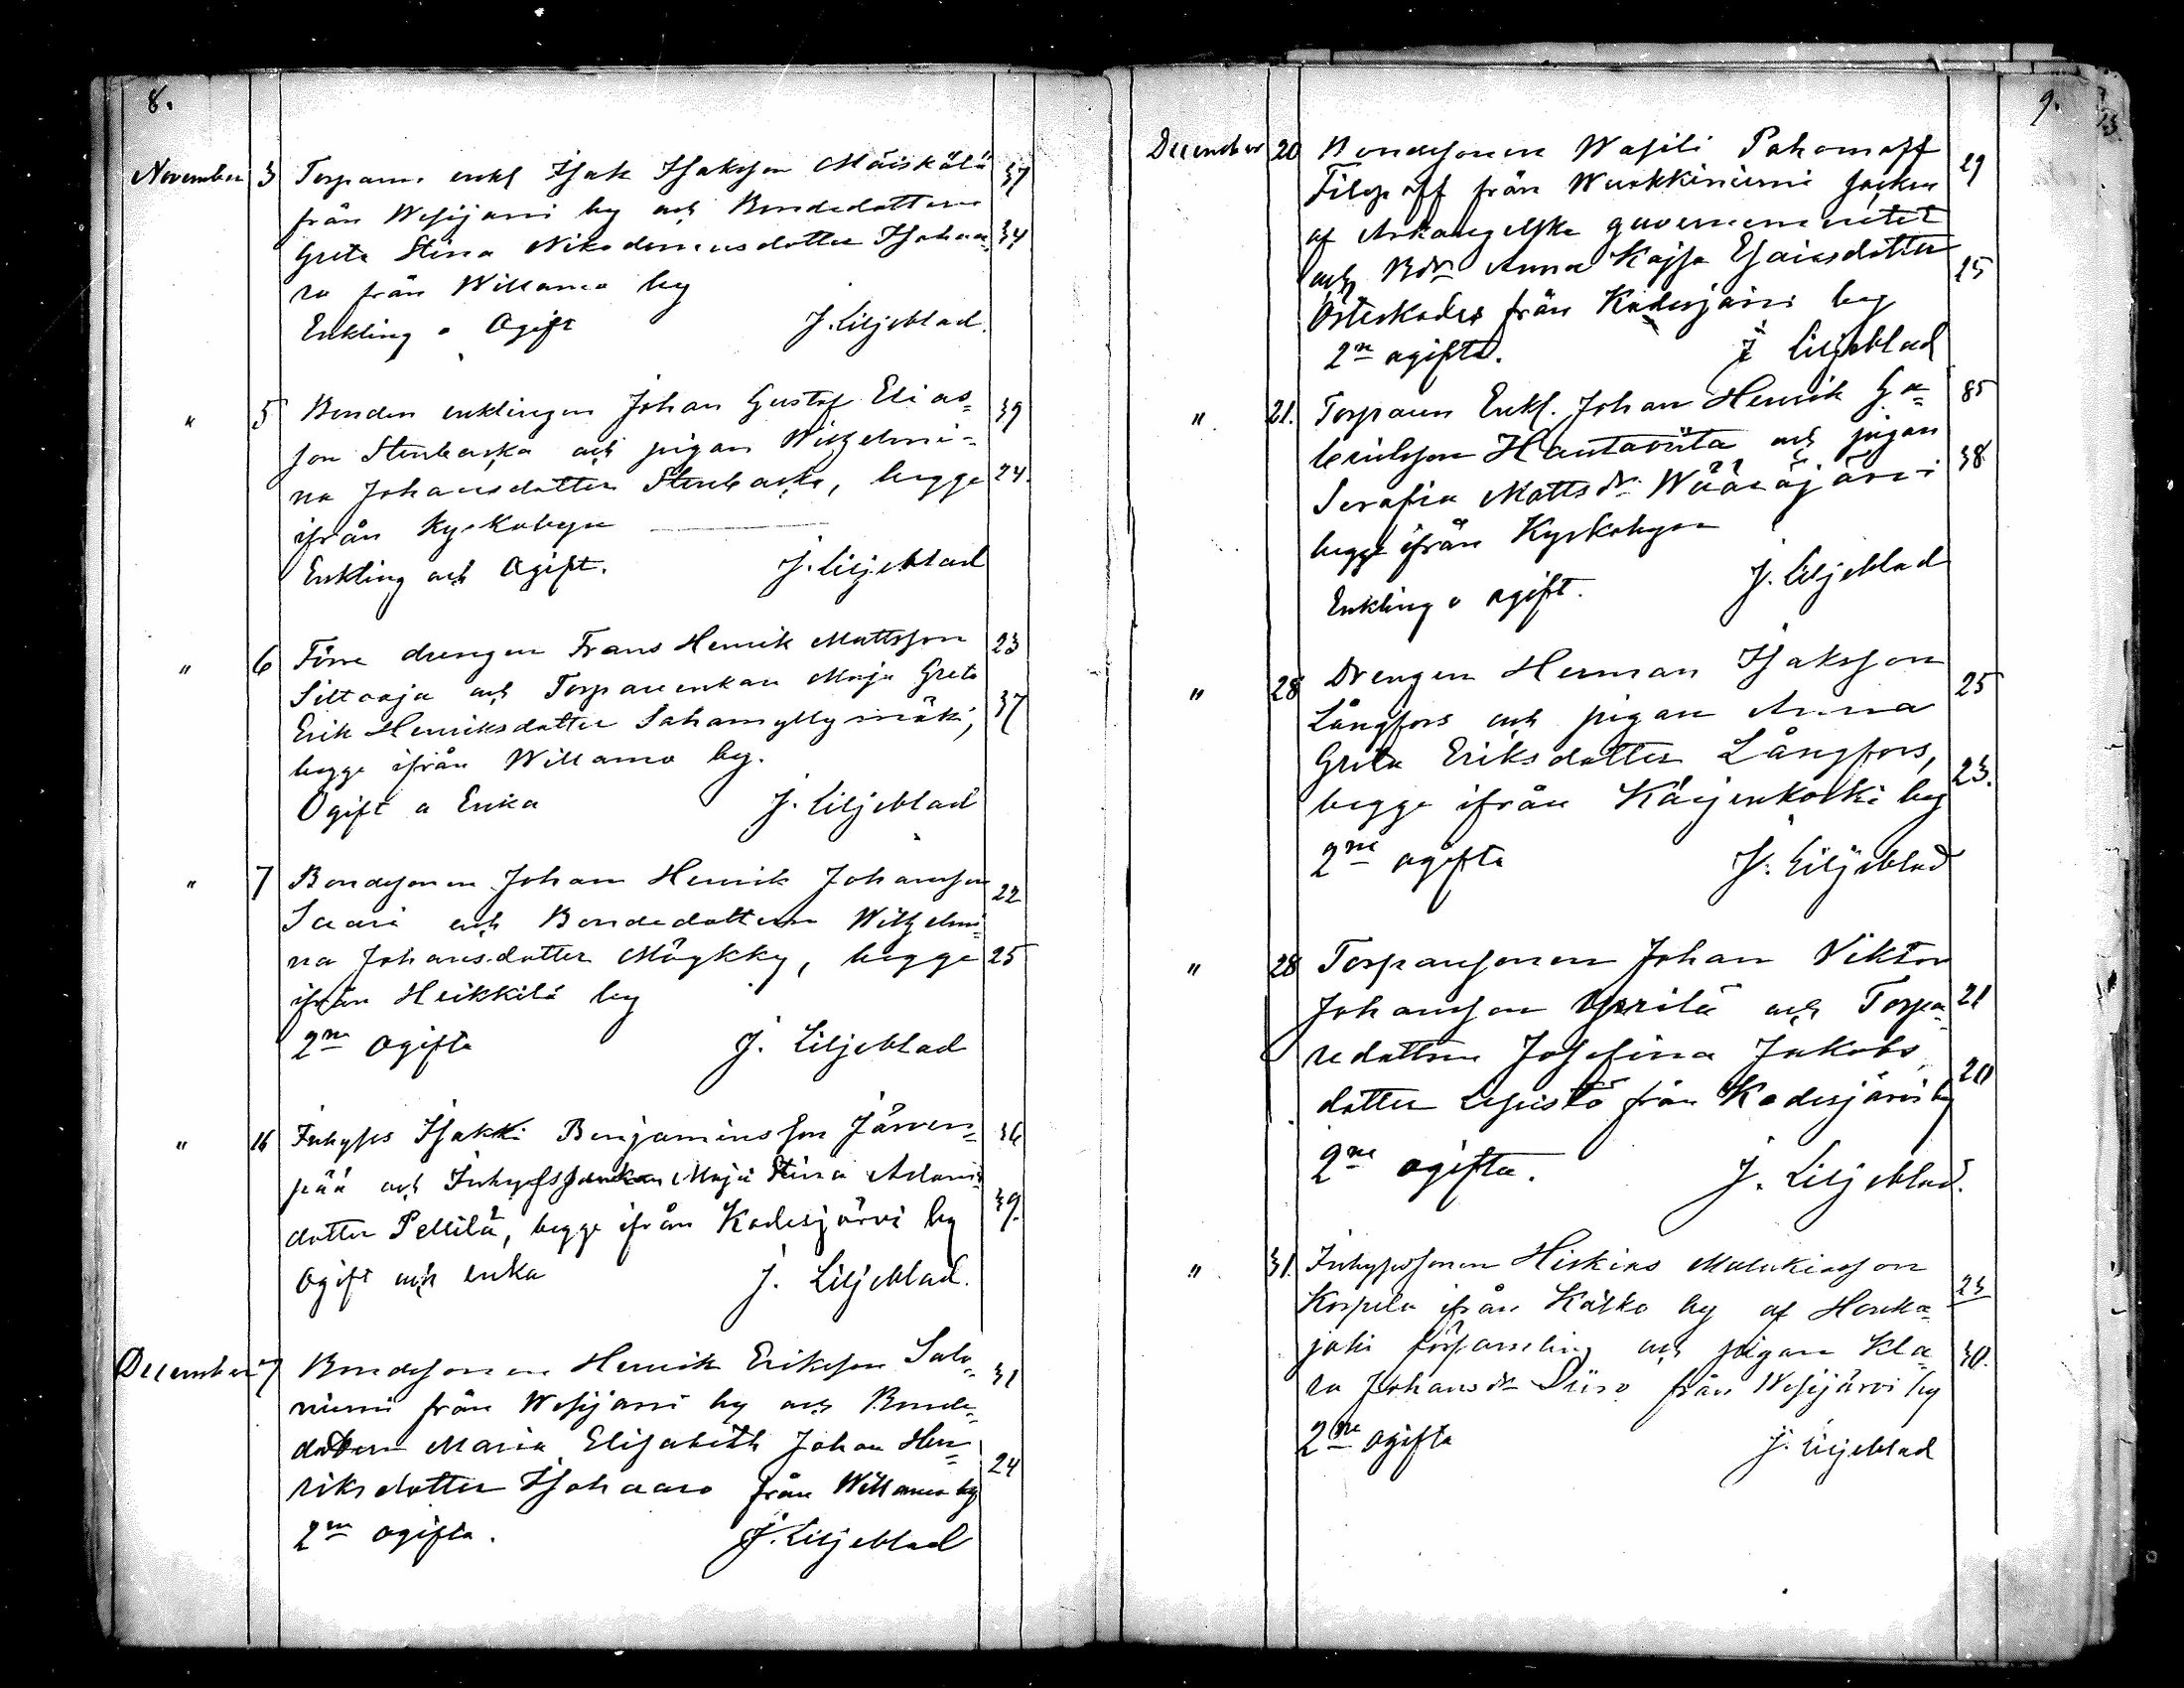 8.
November 3 Torparn enkl Isak Isaksson Mäiskälä 37
från Wesijärvi by och Bondedottern
Greta Stina Nikodemusdotter Isohaa= 34
ra från Willamo by
Enkling o Ogift J. Liljeblad.
" 5 Bonden enklingen Johan Gustaf Elias= 39
son Stenbacka och pigan Wilhelmi=
na Johansdotter Stenbacka, begge 24.
ifrån Kyrkobyn
Enkling och Ogift. J. Liljeblad
" 6 Förre drengen Frans Henrik Mattsson 23
Siltaoja och Torpareenkan Maja Greta
Erik Henriksdotter Sahamyllymäki, 37
begge ifrån Willamo by.
Ogift o Enka J. Liljeblad
" 7 Bondesonen Johan Henrik Johansson 22
Saari och Bondedottern Wilhelmi=
na Johansdotter Möykky, begge 25
ifrån Heikkilä by
2ne Ogifta J. Liljeblad
" 16 Inhyses Isakki Benjaminsson Järven= 36
pää och Inhysesenkan Maja Stina Adams
dotter Pellilä, begge ifrån Kodesjärvi by 39.
Ogift och enka J. Liljeblad.
December 7 Bondesonen Henrik Eriksson Salo= 31
niemi från Wesijärvi by och Bonde=
dottern Maria Elisabeth Johan Hen=
riksdotter Isohaaro från Willamo by 24
2ne ogifta. J. Liljeblad
9.
December 20 Bondesonen Wasili Pahomoff 29
Filipoff från Wuokkiniemi socken
af Arkangelska guvernementet
och Bdr Anna Kajsa Esaiasdotter 25
Österkodes från Kodesjärvi by
2ne ogifta. J Liljeblad
" 21. Torparen Enkl. Johan Henrik Ga= 85
brielsson Hautaviita och pigan
Serafia Mattsdr Wääräjärvi 38
begge ifrån Kyrkobyn
Enkling o ogift. J. Liljeblad
" 28 Drengen Herman Isaksson 25
Långfors och pigan Anna
Greta Eriksdotter Långfors, 23.
begge ifrån Kärjenkoski by
2ne ogifta J. Liljeblad
" 28 Torparesonen Johan Viktor
Johansson Yrrilä och Torpa= 21
redottren Josefina Jakobs 20
dotter Lepistö från Kodesjärvi by
2ne ogifta. J. Liljeblad.
" 31. Inhysessonen Hiskias Malakiasson 23
Korpela ifrån Kätkä by af Honka=
joki församling och pigan Kla= 30.
ra Johansdr Siiro från Wesijärvi by
2ne ogifta J. Liljeblad